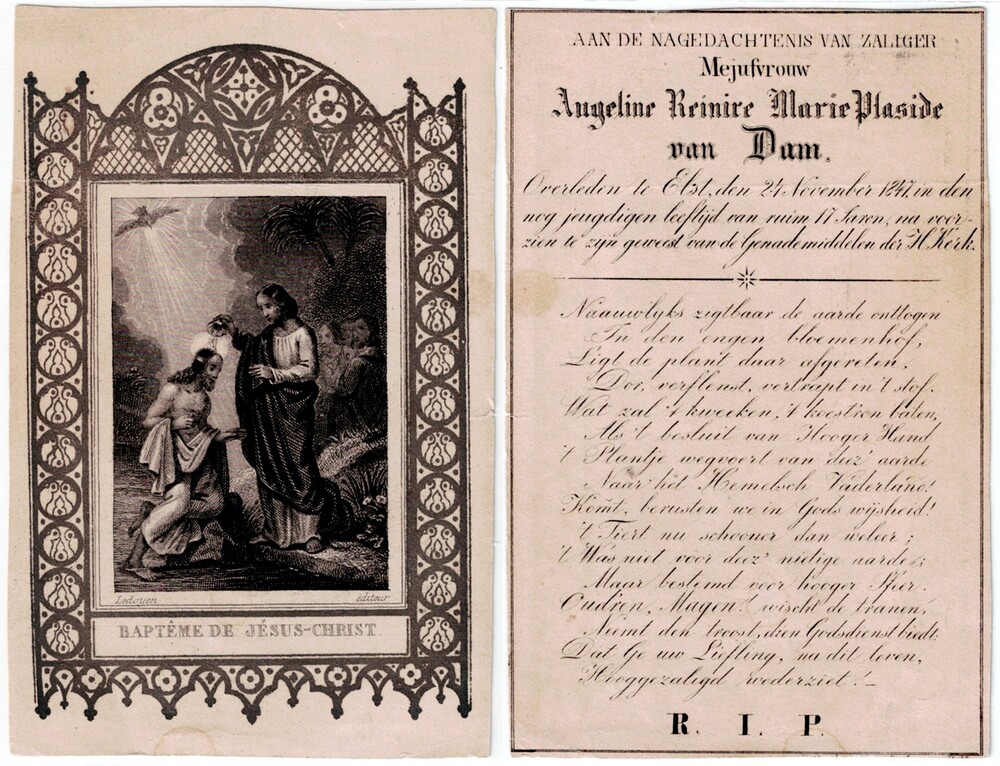 Ledoyen éditeur
BAPTÊME DE JÉSUS-CHRIST
AAN DE NAGEDACHTENIS VAN ZALIGER
Mejufvrouw
Angeline Reinire Marie Plaside
van Dam.
Overleden te Elst, den 24 November 1847, in den
nog jeugdigen leeftijd van ruim 17 Jaren, na voor-
zien te zijn geweest van de Genademiddelen der H. Kerk.
Naauwlyks zigtbaar de aarde ontlogen
In den engen bloemenhof,
Ligt de plant daar afgereten,
Dor, verflenst, vertrapt in 't stof.
Wat zal 't kweeken, 't koestren baten,
Als 't besluit van Hooger Hand
't Plantje wegvoert van deez' aarde
Naar het Hemelsch Vaderland!
Komt, berusten we in Gods wijsheid!
't Tiert nu schooner dan weleer;
't Was niet voor deez' nietige aarde;
Maar bestemd voor hooger Sfeer.
Oudren, Magen! wischt de tranen,
Neemt den troost, dien Godsdienst biedt:
Dat Ge uw Liefling, na dit leven,
Hooggezaligd wederziet!—
R. I. P.